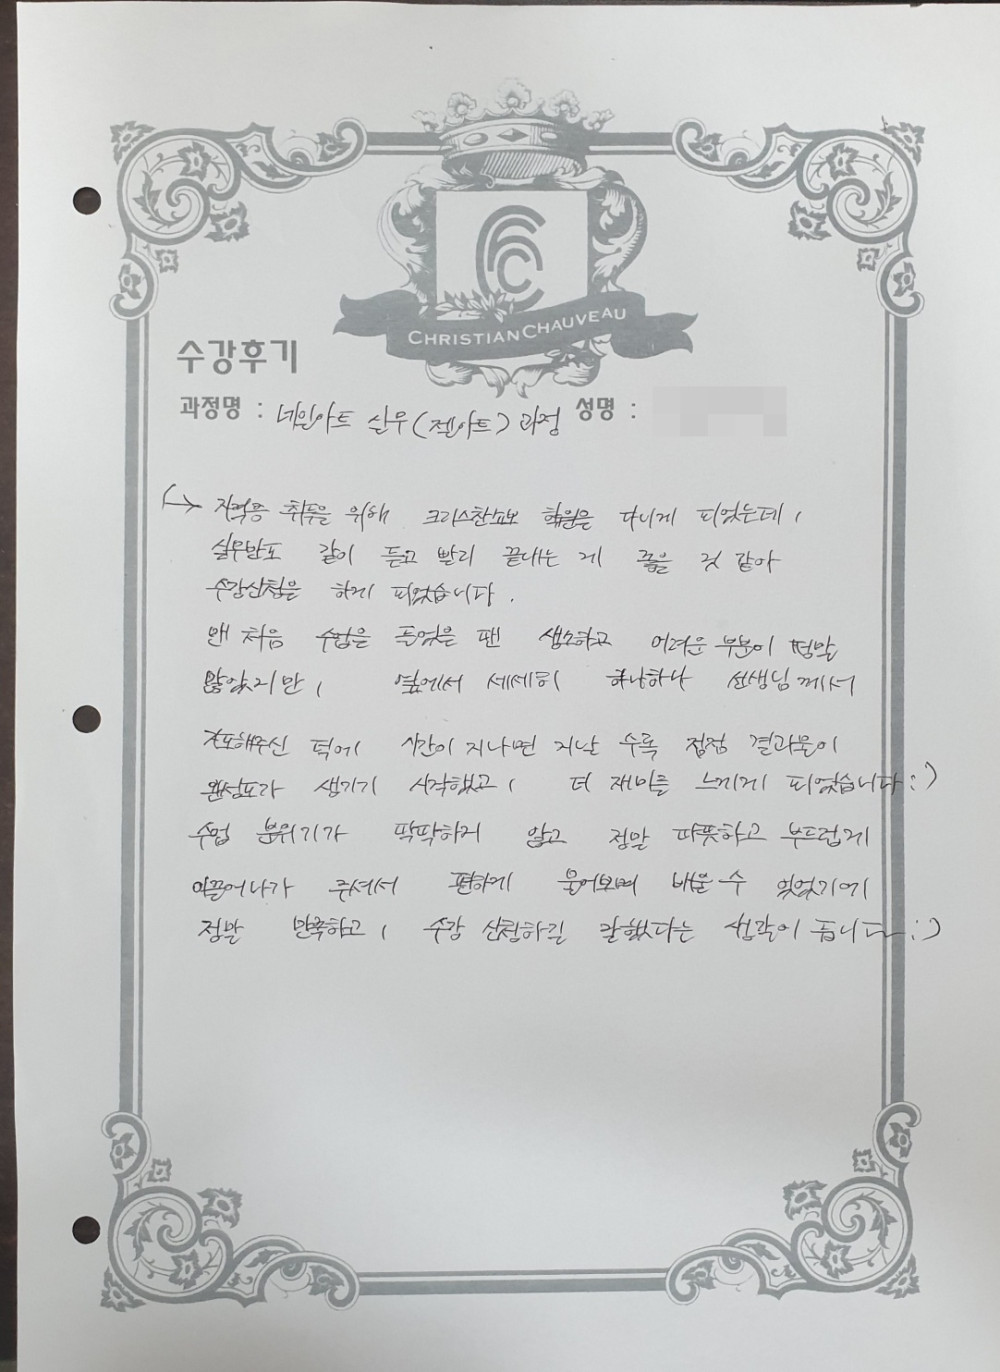 CHRISTIAN CHAUVEAU
수강후기
과정명 : 네일아트 실무(젤아트) 과정 성명 :
자격증 취득을 위해 크리스찬쇼보 학원을 다니게 되었는데,
실무반도 같이 듣고 빨리 끝내는 게 좋을 것 같아
수강신청을 하게 되었습니다.
맨 처음 수업을 들었을 땐 생소하고 어려운 부분이 정말
많았지만, 옆에서 세세히 하나하나 선생님께서
지도해주신 덕에 시간이 지나면 지날 수록 점점 결과물이
완성도가 생기기 시작했고, 더 재미를 느끼게 되었습니다 :)
수업 분위기가 딱딱하지 않고 정말 따뜻하고 부드럽게
이끌어나가 주셔서 편하게 물어보며 배울 수 있었기에
정말 만족하고, 수강 신청하길 잘했다는 생각이 듭니다 :)